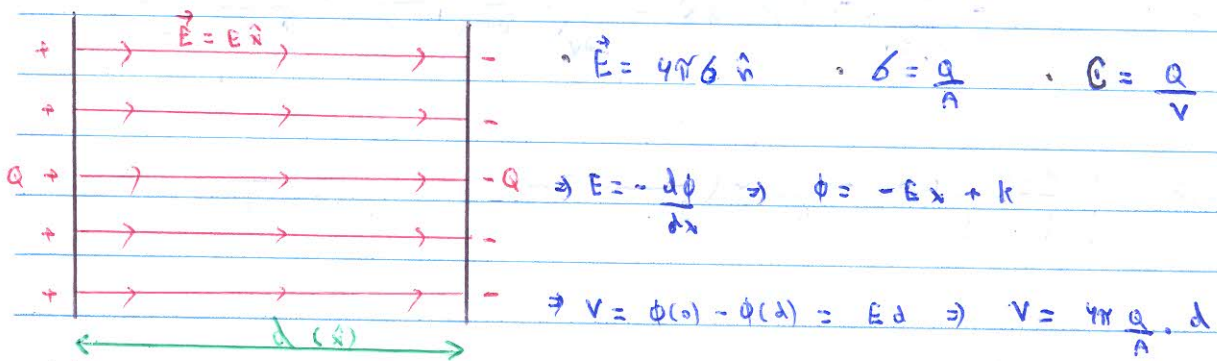 E⃗ = E x̂
+ -
+ -
Q + - Q
+ -
+ -
d (x̂)
· E⃗ = 4πσ n̂ · σ = Q/A · C = Q/V
⇒ E = - dϕ/dx ⇒ ϕ = - E x + k
⇒ V = ϕ(0) - ϕ(d) = E d ⇒ V = 4π Q/A . d